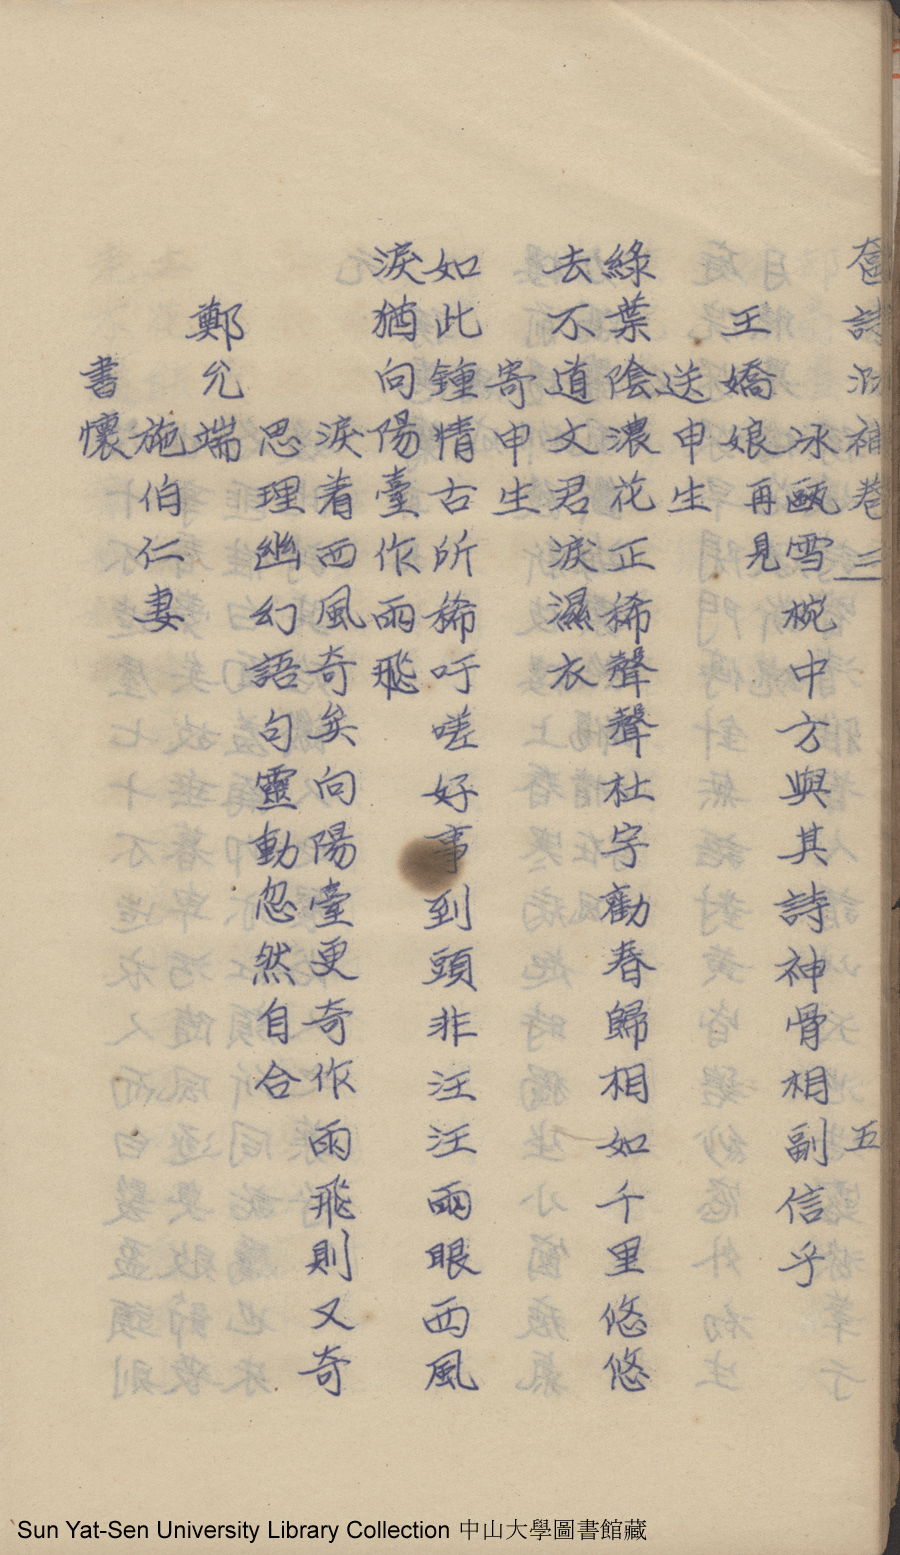 奩詩泐補卷三 五
冰甌雪椀中方與其詩神骨相副信乎
王嬌娘再見
送申生
綠葉陰濃花正稀聲聲杜宇勸春歸相如千里悠悠
去不道文君淚濕衣
寄申生
如此鍾情古所稀吁嗟好事到頭非汪汪兩眼西風
淚猶向陽臺作雨飛
淚着西風奇矣向陽臺更奇作雨飛則又奇
思理幽幻語句靈動忽然自合
鄭允端
施伯仁妻
書懷
Sun Yat-Sen University Library Collection 中山大學圖書館藏